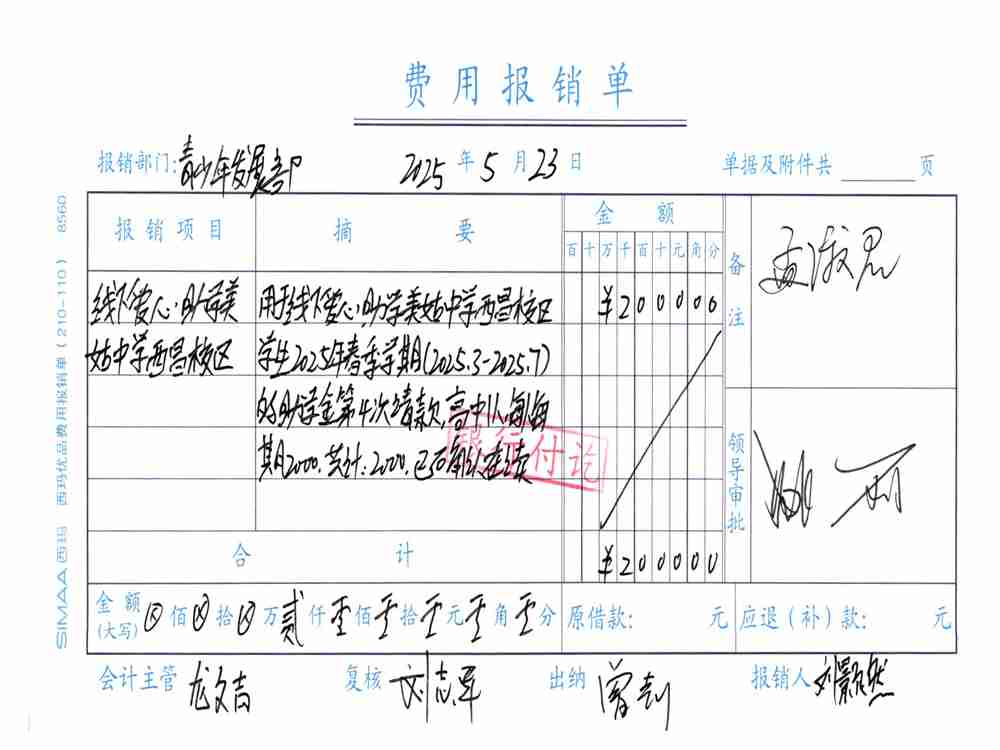 费用报销单
报销部门:青少年发展部 2025年5月23日 单据及附件共 页
报销项目 摘要 金额 备注
百十万千百十元角分
线下爱心助学美 用于线下爱心助学美姑中学西昌校区 ¥200000
姑中学西昌校区 学生2025年春季学期(2025.3-2025.7)
的助学金第4次请款,高中1人,每人每
期2000.共计:2000.已
银行付讫
领导审批
合计 ¥200000
金额(大写) ⊗佰⊗拾⊗万贰仟零佰零拾零元零角零分 原借款: 元 应退(补)款: 元
会计主管 龙文吉 复核 刘志军 出纳 曾 报销人 刘景然
SIMAA西玛 西玛优品费用报销单(210-110) 8560